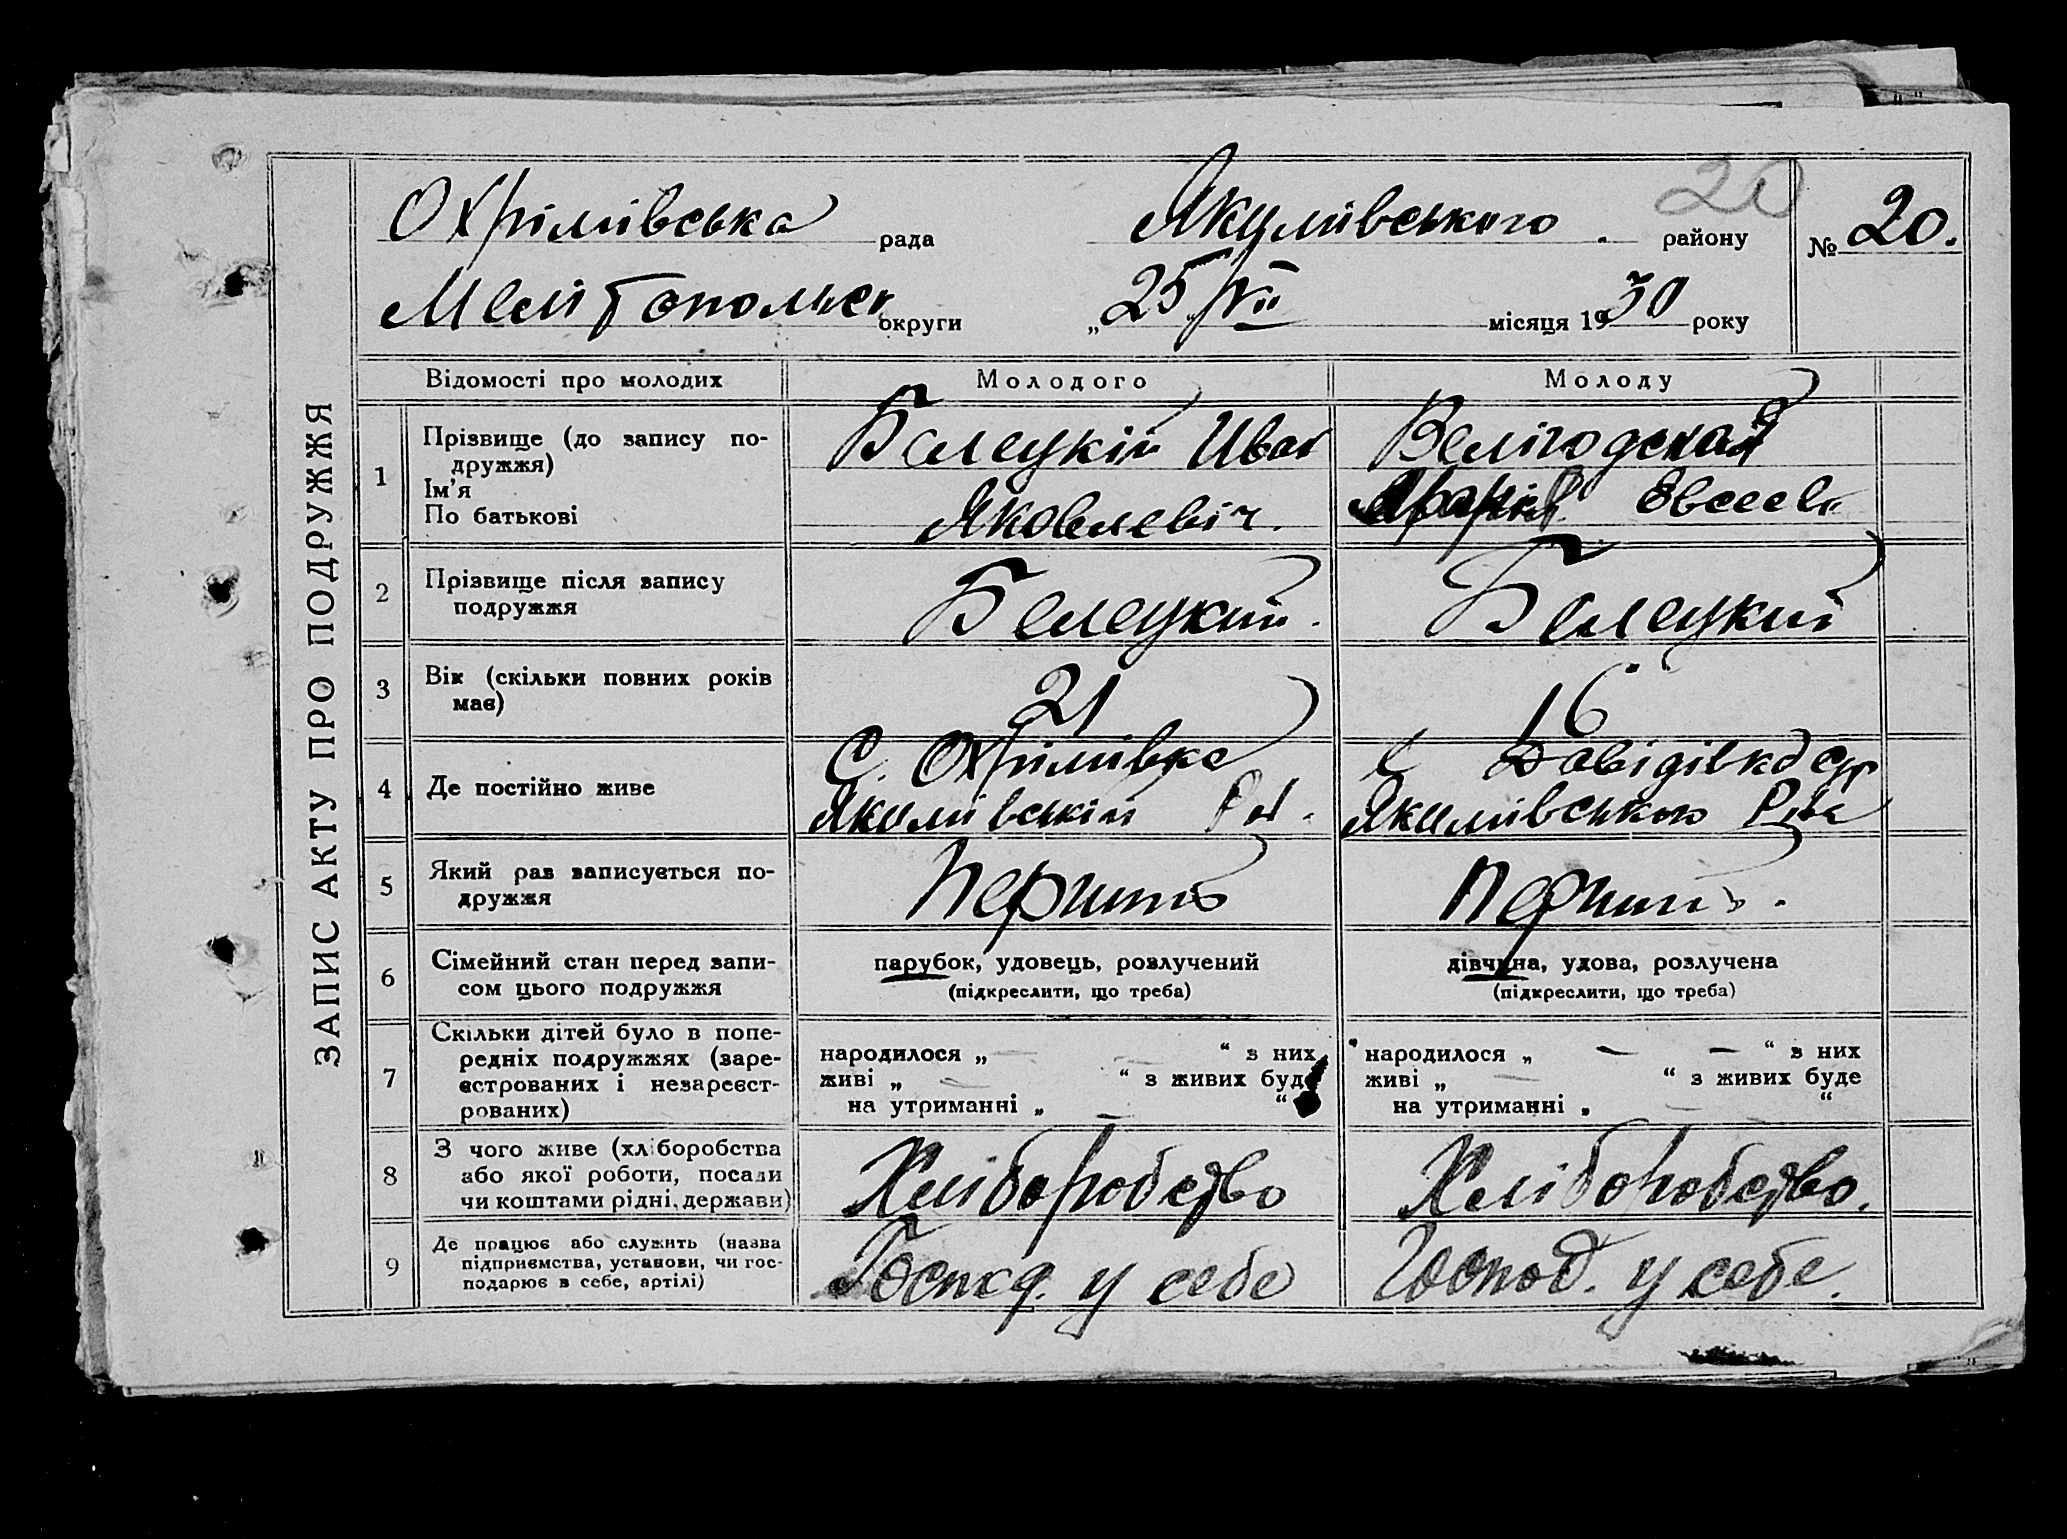 ЗАПИС АКТУ ПРО ПОДРУЖЖЯ
20
Охрімівська рада Якимівського району № 20.
Мелітопольск округи „25" VII місяця 1930 року
Відомості про молодих Молодого Молоду
1 Прізвище (до запису подружжя)
Ім'я
По батькові
Белецкій Иван
Яковлевіч.
Велігодская
Евсеев.
2 Прізвище після запису
подружжя
Белецкий. Белецкий
3 Вік (скільки повних років
має)
21 16
4 Де постійно живе
С. Охрімівка
Якимівський Рай.
с Давідівка
Якимівського Рна
5 Який раз записується по-
дружжя
Перший Перший.
6 Сімейний стан перед запи-
сом цього подружжя
парубок, удовець, розлучений
(підкреслити, що треба)
дівчина, удова, розлучена
(підкреслити, що треба)
7 Скільки дітей було в попе-
редніх подружжях (заре-
єстрованих і незареєст-
рованих)
народилося „ — — “ з них
живі „ — “ з живих буде
на утриманні „ — “
народилося „ — — “ з них
живі „ — “ з живих буде
на утриманні „ — “
8 З чого живе (хліборобства
або якої роботи, посади
чи коштами рідні, держави)
Хліборобство Хліборобство.
9 Де працює або служить (назва
підприємства, установи, чи гос-
подарює в себе, артілі)
Господ. у себе Господ. у себе.